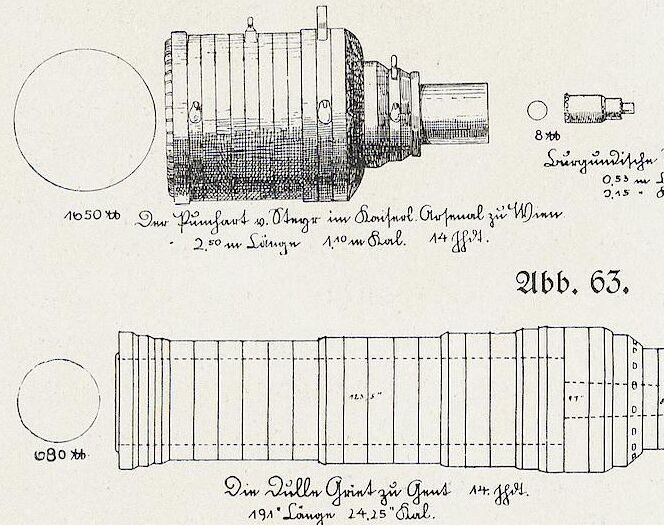 1050 ℔
Der Pumhart v. Steyr im Kaiserl. Arsenal zu Wien
2,50 m Länge 1,10 m Kal. 14 Jhdt.
8 ℔
Burgundische
0,53 m L
0,15 "
Abb. 63.
123,5"
680 ℔
Die Dulle Griet zu Gent 14. Jhdt.
191" Länge 24,25" Kal.